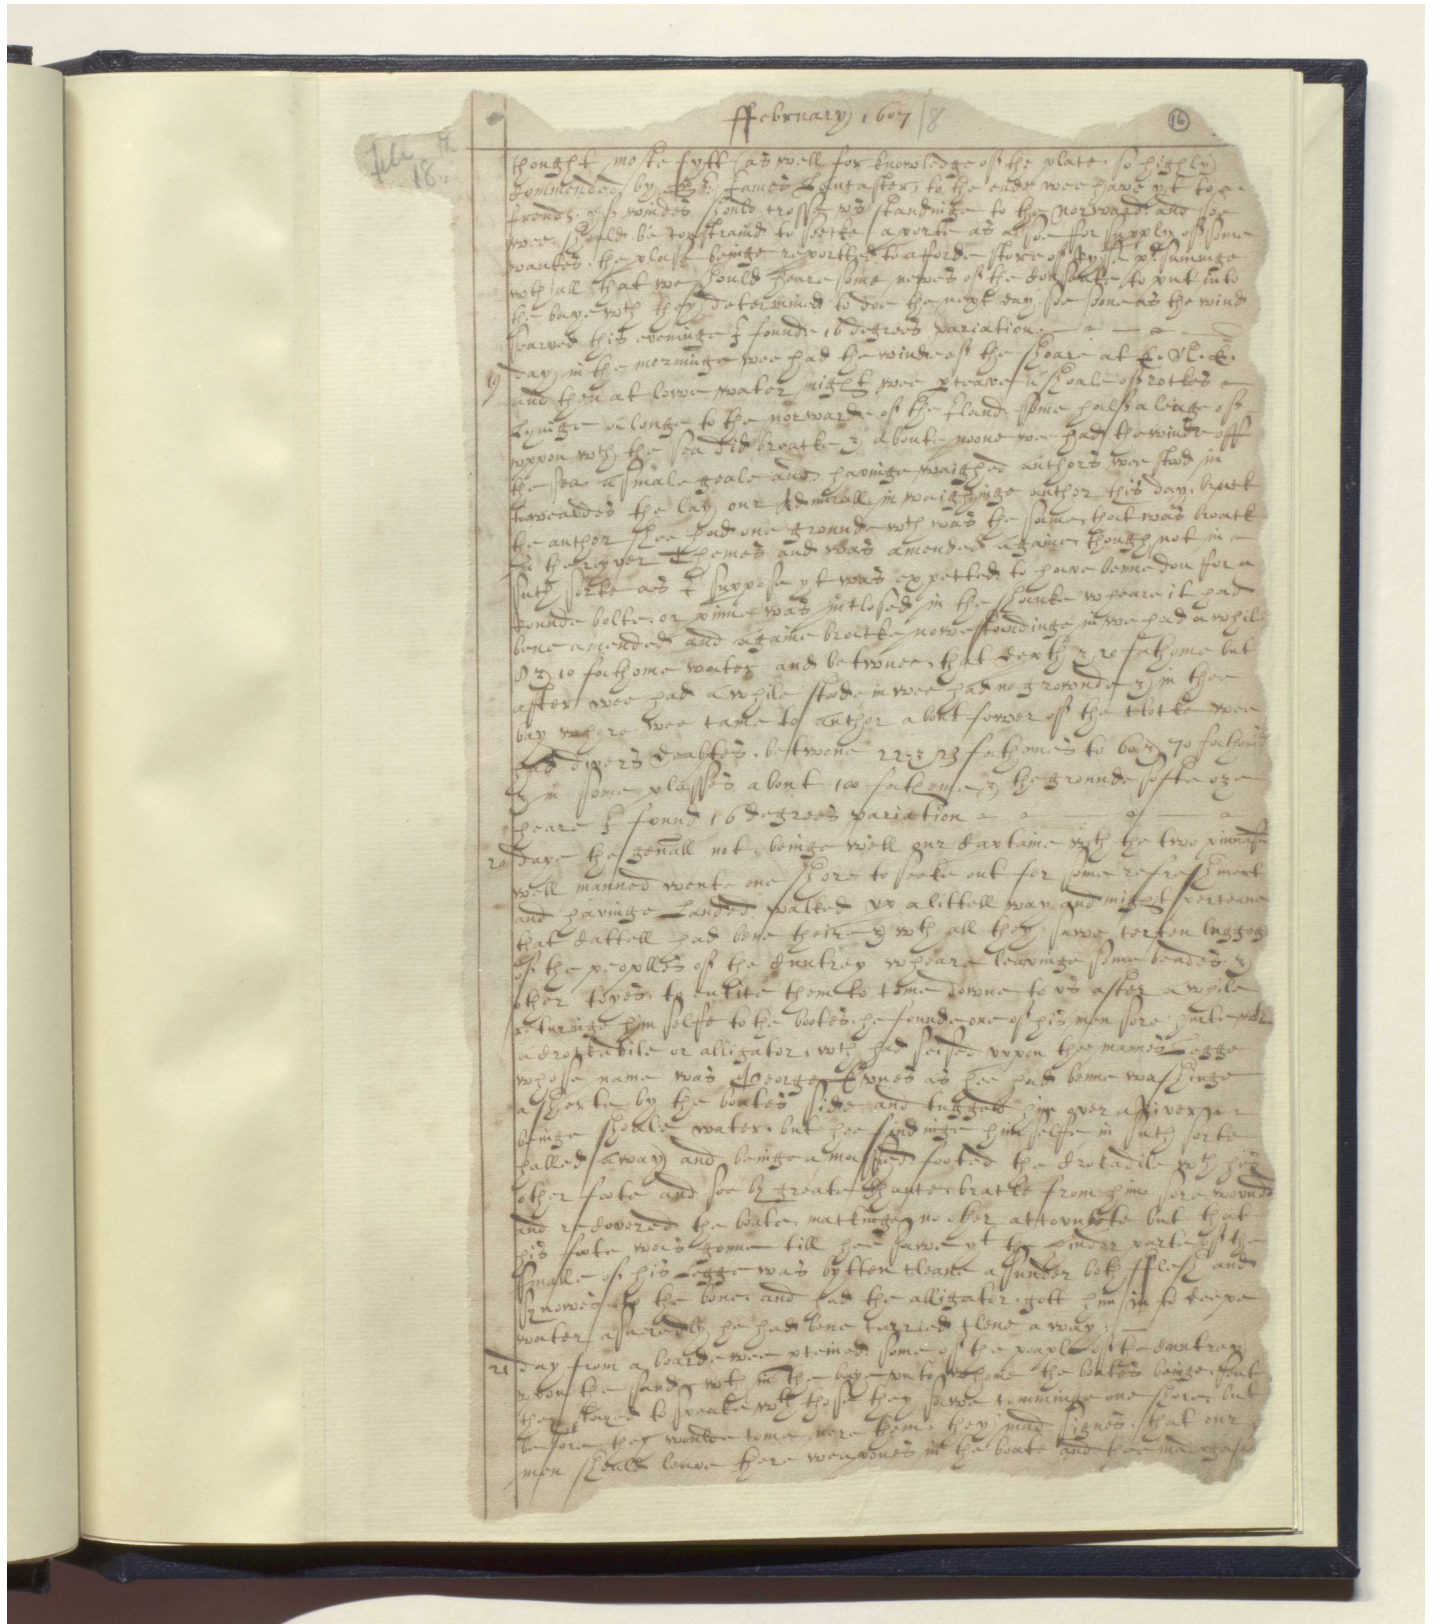 ffebruary 1607/8
16
Feb 18th
thought moste fytt (as well for knowledge of the place so highly
Commended by Sr James Lancaster, to the ende wee have yt to
frende yf windes should crosse us standinge to the Norward and soe
wee should be constraind to seeke a porte as alsoe for supply of some
wantes, the place beinge reported to afforde store of
wth all that we should heare some newes of the to put into
the baye wch they determined to doe the next day soe soone as the wind
searved this eveninge I founde 16 degrees variation
19 day in the morninge wee had the winde of the shoare at E. N. E.
and then at lowe water might wee pceave a shoale of rockes
Lyinge a longe to the norwarde of the Iland some halfe a leage of
uppon wch the sea did breacke & aboute noone wee had the winde off
the sea a smale geale and havinge waighed anchors wee stood in
towardes the bay our Admirall in waighinge anchor this day, brack
the anchor shee had one grounde wch was the same that was brack
in the ryver Themes and was amended againe though not in
such sorte as I suppose yt was expected to have benne don for a
rounde bolte or pinne was inclosed in the shanke wheare it had
bene amended and againe bracke nowe standinge in we had a while
8 & 10 fathome water and betwnee that depth & 20 fathome but
after wee had a while stoode in wee had no grownde & in thee
bay where wee came to anchor about fower of the clocke wee
had divers deabtes betwene 22 & 23 fathomes to 60 & 70 fathoms
& in some plasses about 100 fathome & the grounde softe oze
heare I found 16 degrees variation
20 daye the genall not beinge well our Captaine wth the two pinnasses
well manned wente one shore to seeke out for some refreshment
and havinge Landed walked up a littell way and might perceave
that Cattell had bene theire & wth all they sawe
of the peoplles of the Cuntrey wheare leavinge some beades &
other toyes to entice them to come downe to us after a while
returinge him selfe to the bootes he founde one of his men sore hurte
a Crockadile or alligator wch had seised uppon the mannes Legge
whose name was George Evnes as hee had benne washinge
a shorte by the boates side and tugged him over
beinge shoale water, but hee findinge him selfe in such sorte
halled away and beinge amassed footed the Crokadile wth his
other foote and soe by greate Chance bracke from him sore wounde
and recovered the boate, mackinge no other accounte but that
his foote was gonne till hee sawe yt the hinder parte of the
smalle of his Legge was bytten cleane a sunder both flesh and
synowes to the bone, and had the alligator gott him in to deepe
water asuredly he had bene carried clene a way.
21 day from a boarde wee pceived some of the people of the Cuntrey
upon the sands wth in the baye unto whome the boates beinge sent
they stayed to speake wth those they sawe comminge one shore, but
before they woulde come nere them, they mad signes that our
men should leave there weapones in the boate and